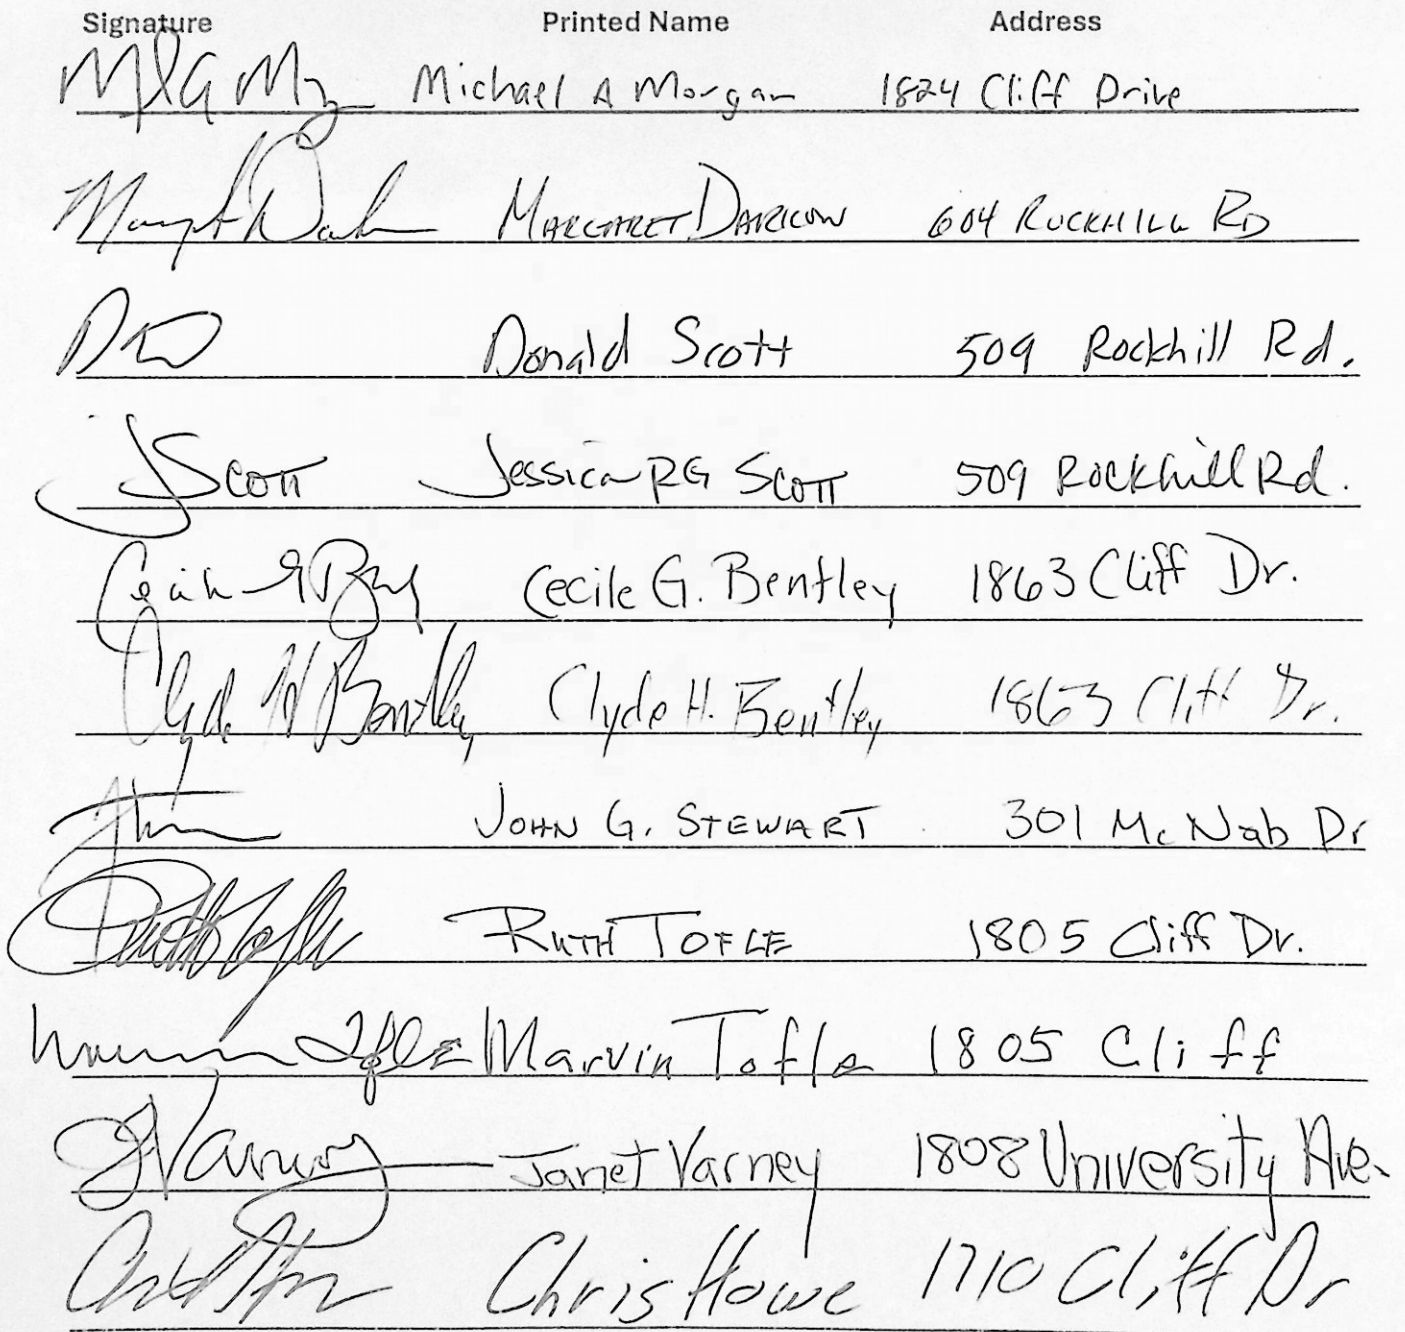 Signature Printed Name Address
Michael A Morgan 1824 Cliff Drive
MARGARET DARROW 604 ROCKHILL RD
Donald Scott 509 Rockhill Rd.
JScott Jessica RG Scott 509 Rockhill Rd.
Cecile G. Bentley 1863 Cliff Dr.
Clyde H Bentley Clyde H. Bentley 1863 Cliff Dr.
JOHN G. STEWART 301 McNab Dr
Ruth Tofle RUTH TOFLE 1805 Cliff Dr.
Tofle Marvin Tofle 1805 Cliff
JVarney Janet Varney 1808 University Ave.
Chris Howe 1710 Cliff Dr